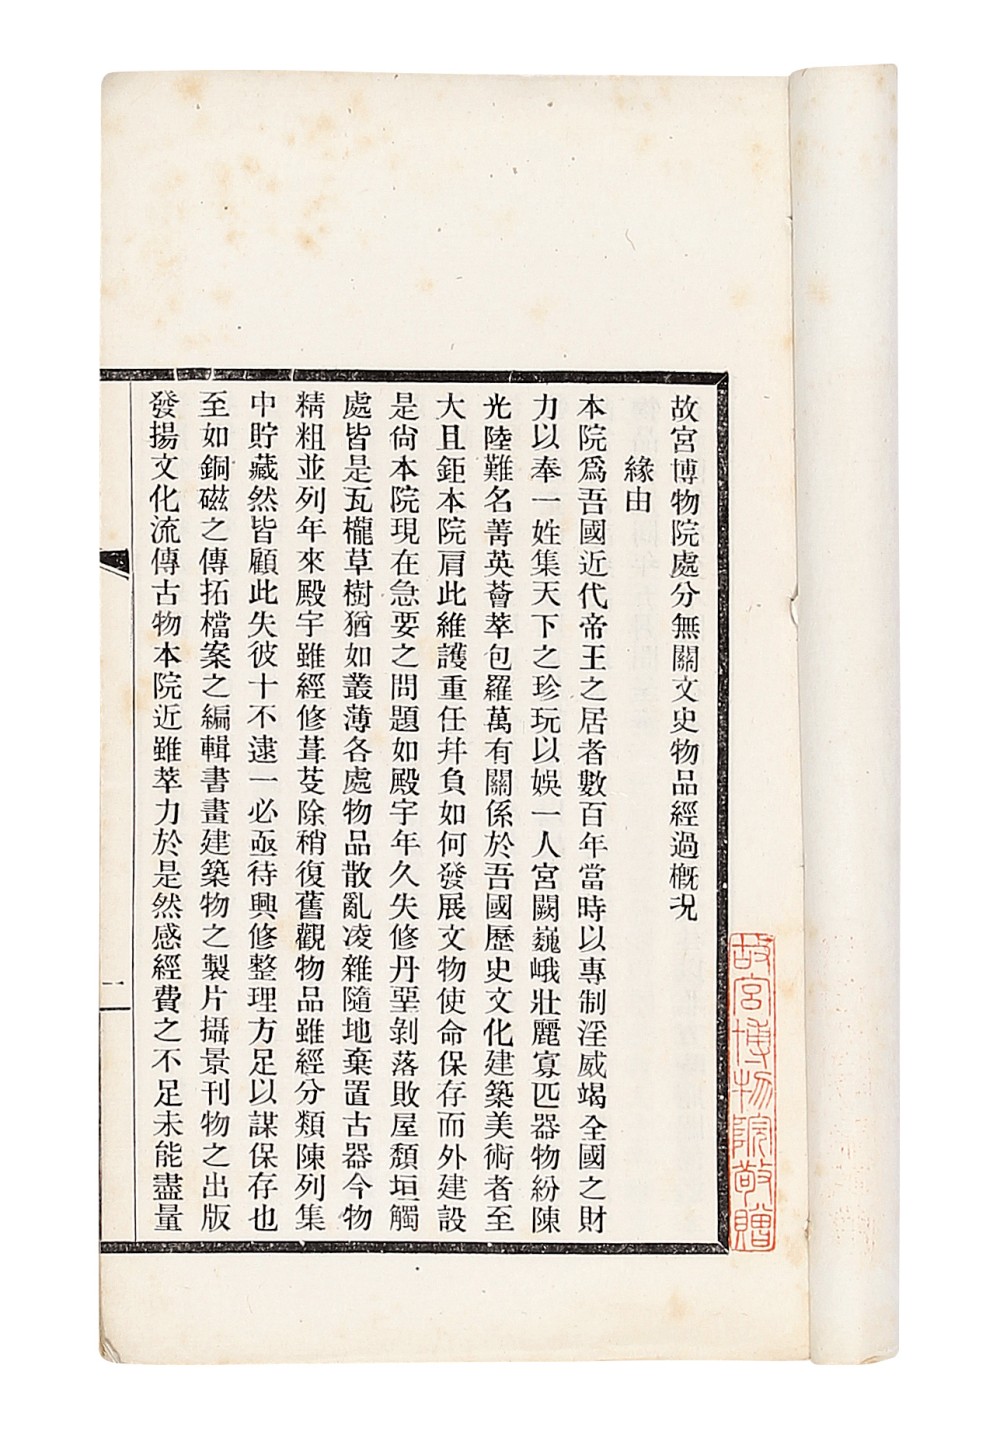 故宮博物院處分無關文史物品經過概況
緣由
本院爲吾國近代帝王之居者數百年當時以專制淫威竭全國之財
力以奉一姓集天下之珍玩以娛一人宮闕巍峨壯麗寡匹器物紛陳
光陸難名菁英薈萃包羅萬有關係於吾國歷史文化建築美術者至
大且鉅本院肩此維護重任幷負如何發展文物使命保存而外建設
是尙本院現在急要之問題如殿宇年久失修丹堊剝落敗屋頹垣觸
處皆是瓦櫳草樹猶如叢薄各處物品散亂凌雜隨地棄置古器今物
精粗並列年來殿宇雖經修葺芟除稍復舊觀物品雖經分類陳列集
中貯藏然皆顧此失彼十不逮一必亟待興修整理方足以謀保存也
至如銅磁之傳拓檔案之編輯書畫建築物之製片攝景刊物之出版
發揚文化流傳古物本院近雖萃力於是然感經費之不足未能盡量
二
故宮博物院敬贈